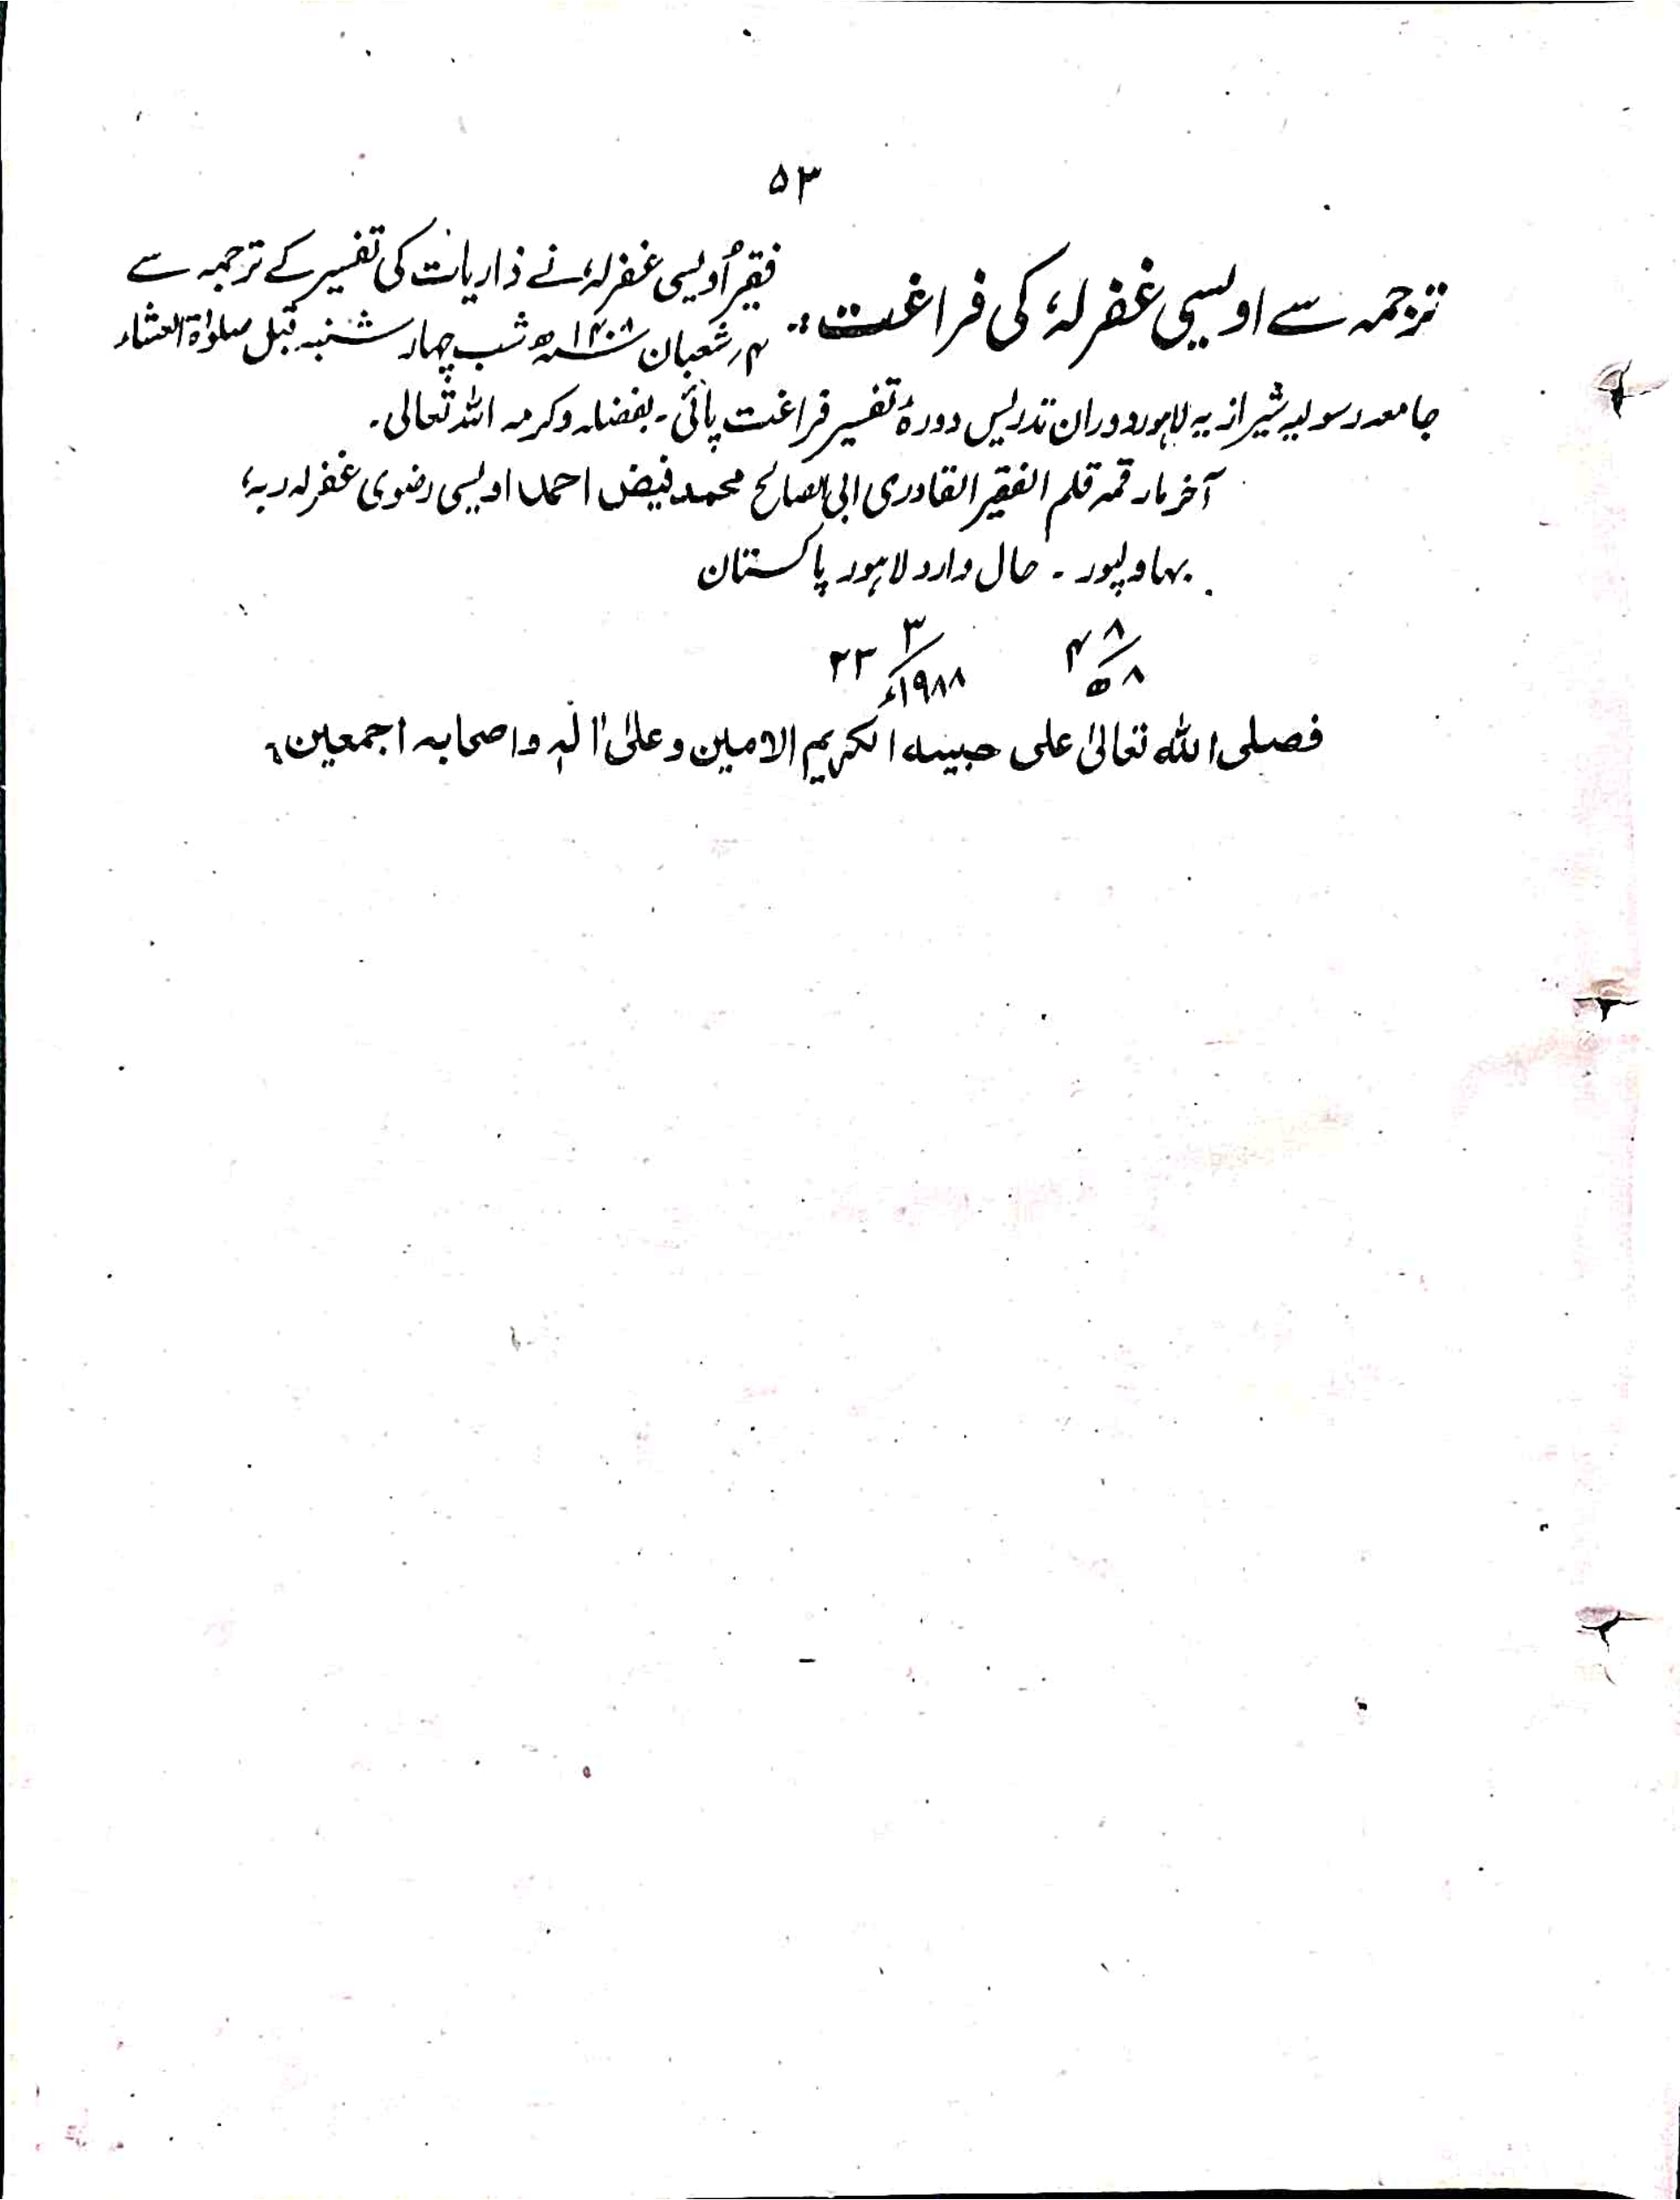 ۵۳
ترجمہ سے اویسی غفرلہٗ کی فراغت:۔
فقیر اُویسی غفرلہٗ نے ذاریات کی تفسیر کے ترجمہ سے
۴ر شعبان ۱۴۰۸ھ شب چہار شنبہ قبل صلوٰۃ العشاء
جامعہ رسولیہ شیرازیہ لاہور دوران تدریس دورۂ تفسیر فراغت پائی۔ بفضلہ وکرمہ اللہ تعالی۔
آخر ما رقمہ قلم الفقیر القادری ابی الصالح محمد فیض احمد اویسی رضوی غفرلہ ربہٗ
بہاولپور ۔ حال وارد لاہور پاکستان
۴ ۸/۸ھ ۲۳ ۳/۱۹۸۸ء
فصلی اللہ تعالیٰ علی حبیبہ الکریم الامین وعلیٰ اٰلہٖ واصحابہ اجمعین۔